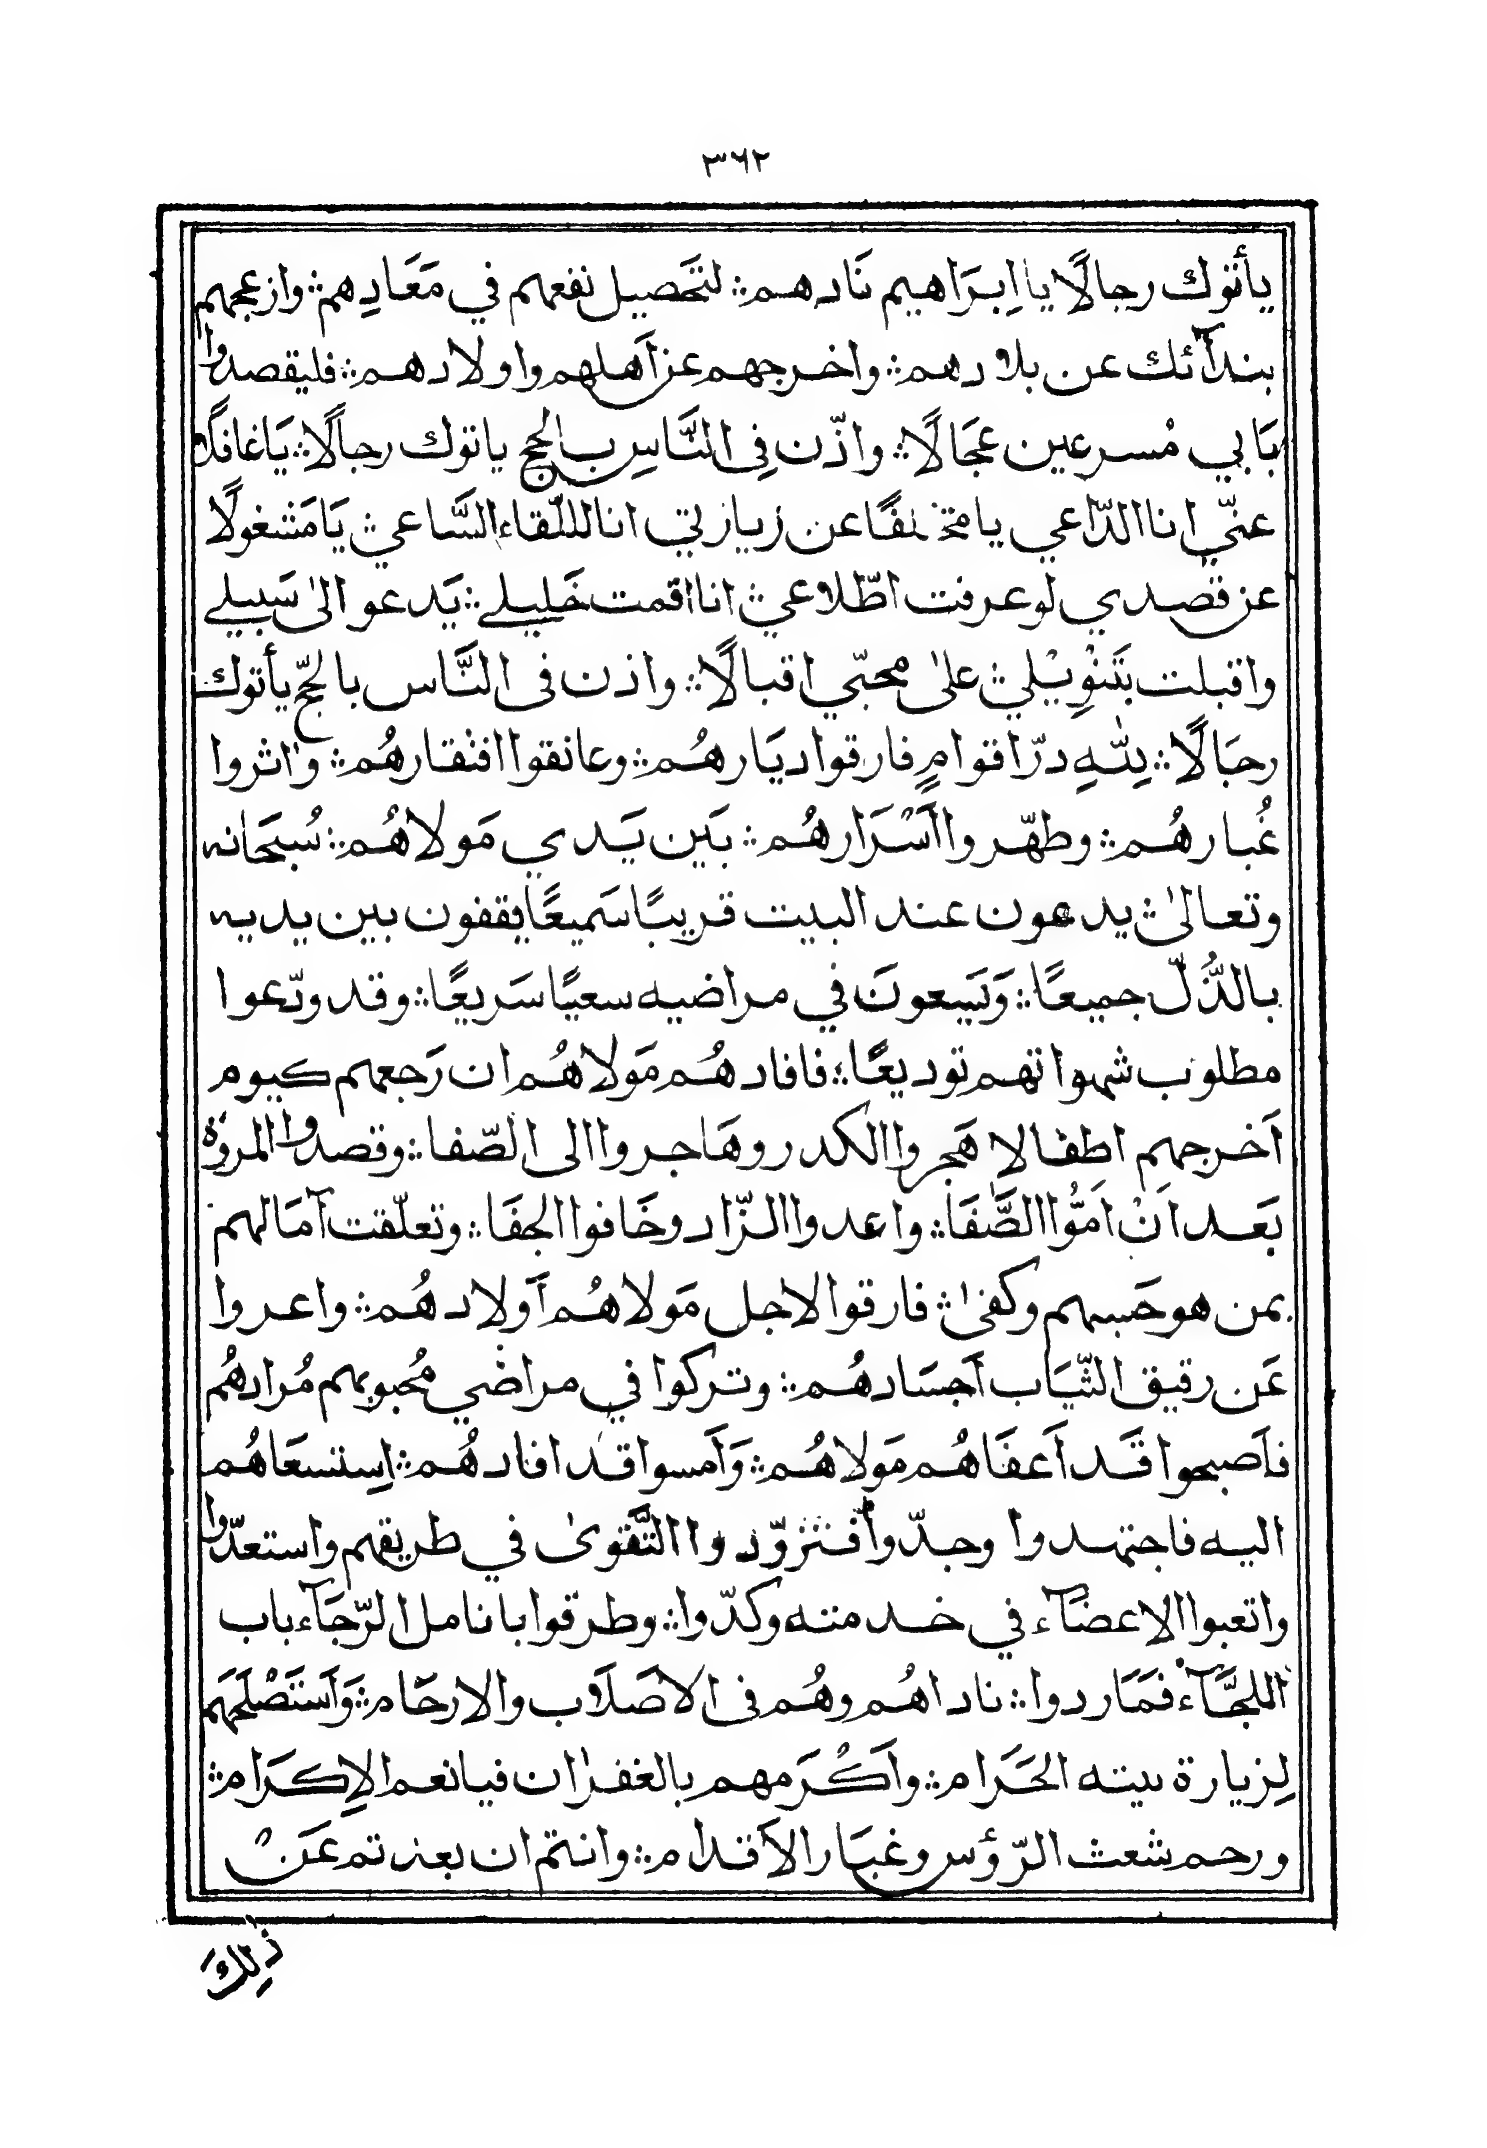 ٣٦٢
يأتوك رجالًا يا اِبرَاهيم نَادهم؞ لتحَصيل نفعهم في مَعَادِهم؞ وازعجهم
بندآئك عن بلادهم؞ واخرجهم عن اَهلهم واولادهم؞ فليقصدوا
بَابي مْسرعين عجَالًا؞ واذّن فِى النَّاسِ بالحج ياتوك رجالًا؞ يَاغافلًا
عنّي انا الدّاعي يا متخلفًا عن زيارتي انا للقاء السَّاعي؞ يَامَشغولًا
عن قصدي لوعرفت اطّلاعي؞ انا اقمت خَليلے؞ يَدعو الىٰ سَبيلے
واقبلت بتَنوْيلي؞ علىٰ محبّي اقبالًا؞ واذن فى النَّاس بالحجّ يأتوك
رجَالًا؞ لِلّٰهِ درّ اقوامٍ فارقوا ديَارهُم؞ وعانقوا افتقارهُم؞ واٰثروا
غُبارهُم؞ وطهّروا اَسْرَارهُم؞ بَين يَدي مَولاهُم؞ سُبحَانه
وتعالىٰ؞ يدعون عند البيت قريبًا سَميعًا يقفون بين يديه
بالذُّلّ جميعًا؞ وَيَسعونَ في مراضيه سعيًا سَريعًا؞ وقد ودّعوا
مطلوب شهواتهم توديعًا؞ فافادهُم مَولاهُم ان رَجعهم كيوم
اَخرجهم اطفالا هَجروا الكدر وهَاجروا الى الصّفا؞ وقصدوا المروة
بَعد اَنْ اَمُّوا الصَّفَا؞ واعدوا الزّاد وخَافوا الجفَا؞ وتعلّقت آمَالهم
بمن هو حَسبهم وكفىٰ؞ فارقوا لاجل مَولاهُم اَولادهُم؞ واعروا
عَن رقيق الثّيَاب اَجسَادهُم؞ وتركوا في مراضي مُحبوبهم مُرادهُم
فاَصبحوا قَد اَعفَاهُم مَولاهُم؞ وَاَمسوا قَد افادهُم؞ اِستسعَاهُم
اليه فاجتهدوا وجدّوا فتزوّدوا التَّقوىٰ في طريقهم واستعدّوا
واتعبوا الاعضَآء في خدمته وكدّوا؞ وطرقوا بانامل الرّجَآء باب
اللجَّآء فمَاردوا؞ ناداهُم وهُم فى الاَصلَاب والارحَام؞ وَاَستَصْلَحَهم
لِزيارة بيته الحَرام؞ واَكْرَمهم بالغفران فيانعم الاِكرَام؞
ورحم شعث الرّؤس وغبَار الاَقدام؞ وانتم ان بعدتم عَنْ
ذٰلِكَ